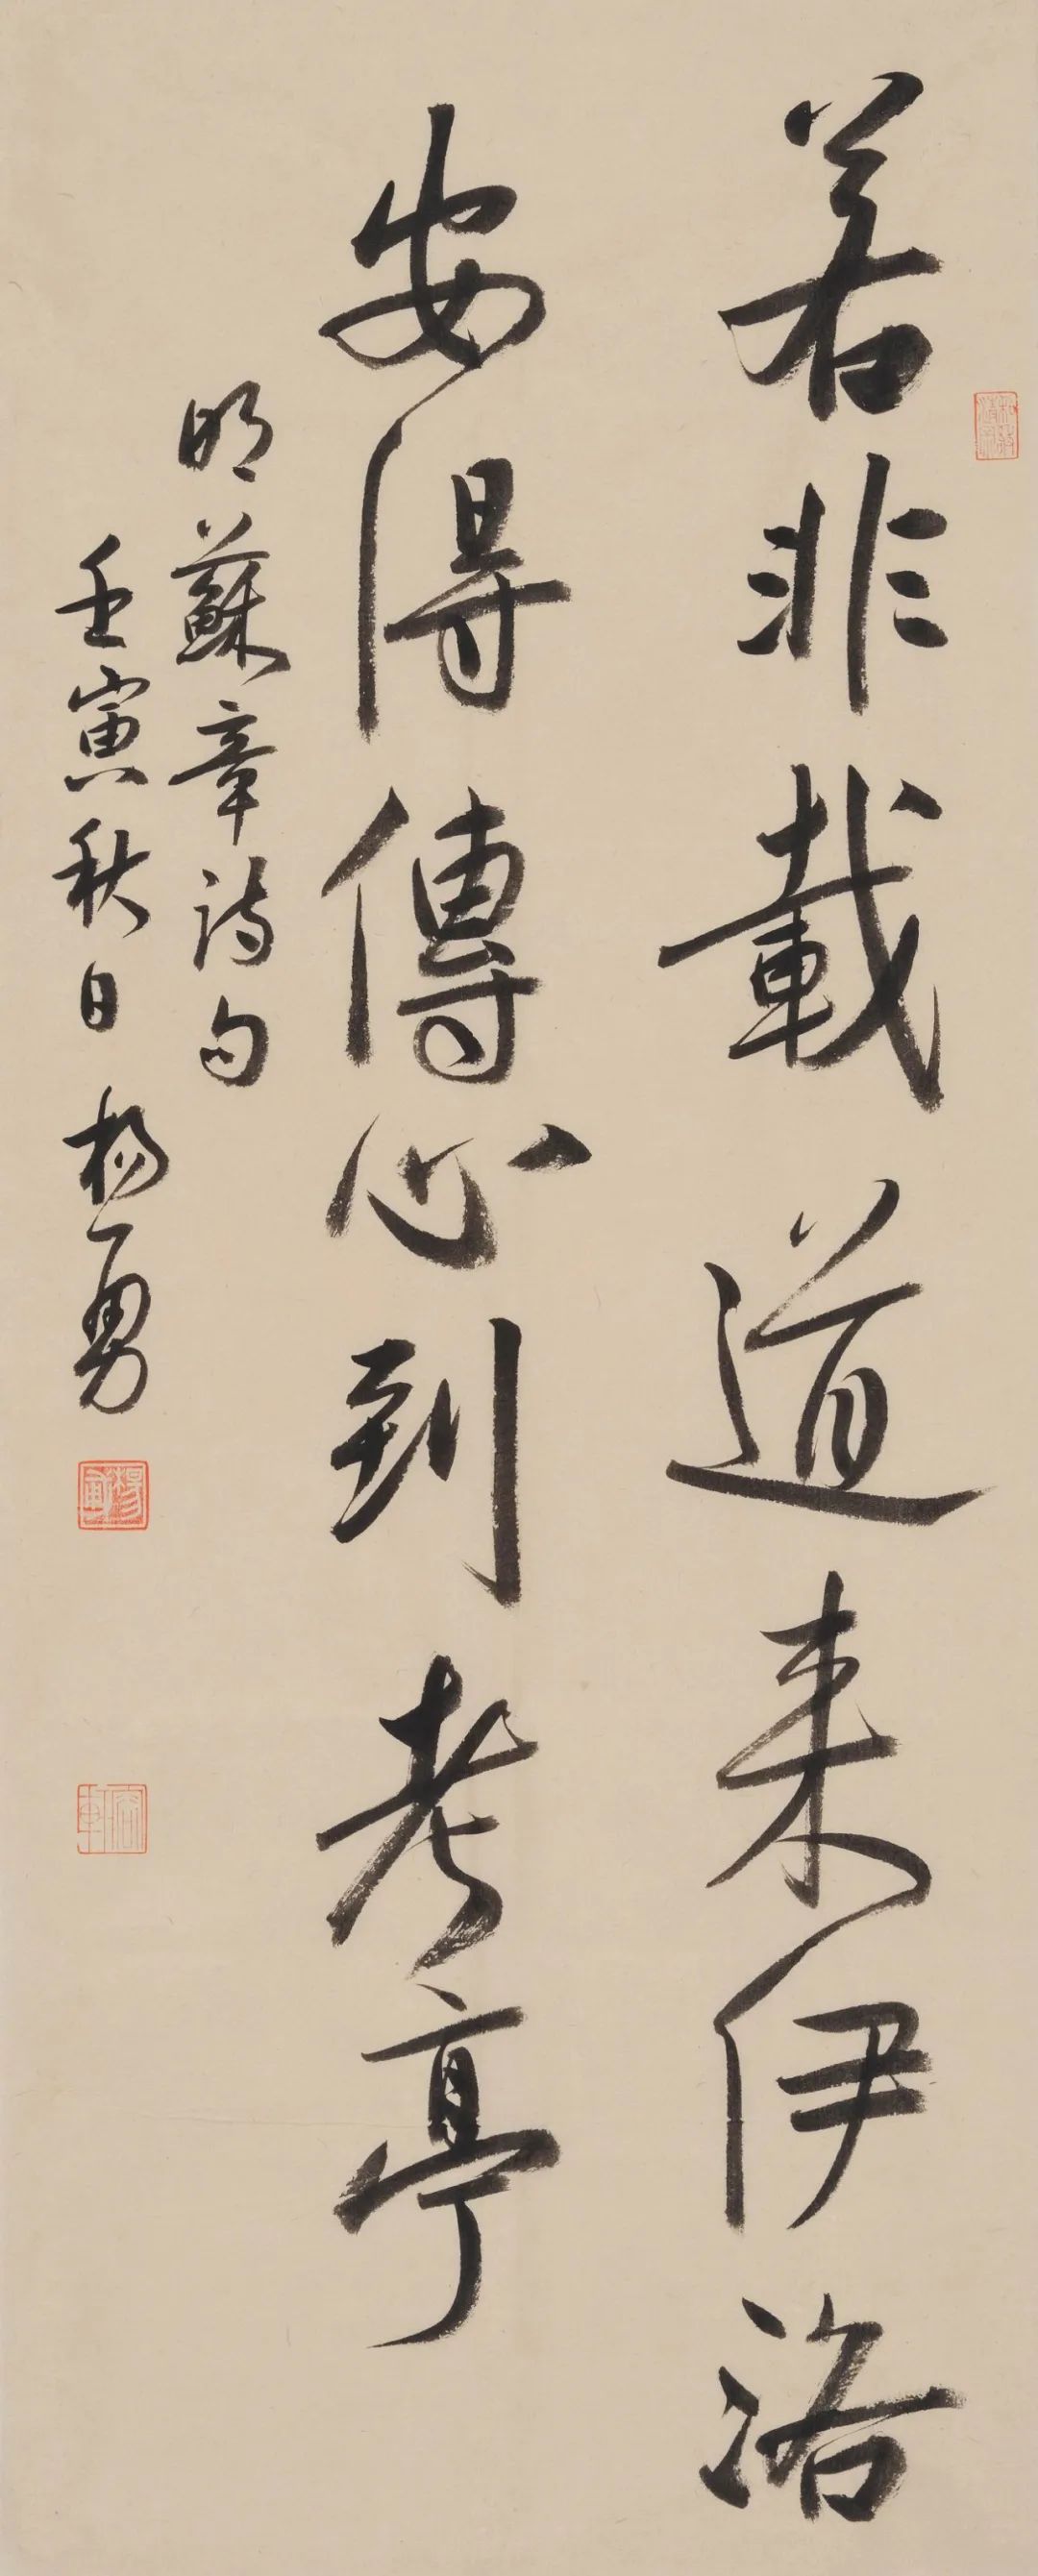 若非載道来伊洛
安得傳心到考亭
明蘇章詩句
壬寅秋日楊勇